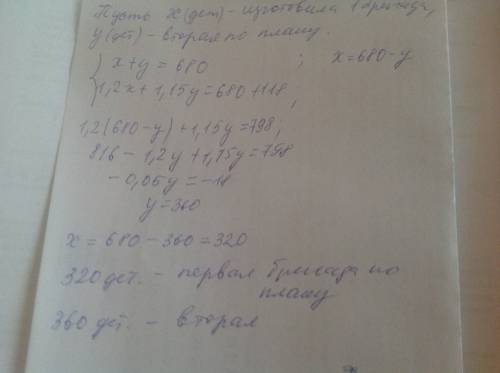 Пусть х (дет) - изготовила 1 бригада,
y (дет) - вторая по плану.
x+y = 680 ; x=680-y
1,2x + 1,15y = 680+118 ;
1,2(680-y)+1,15y=798;
816 - 1,2y + 1,15y = 798
-0,05y = -18
y = 360
x = 680 - 360 = 320
320 дет. - первая бригада по
плану
360 дет. - вторая